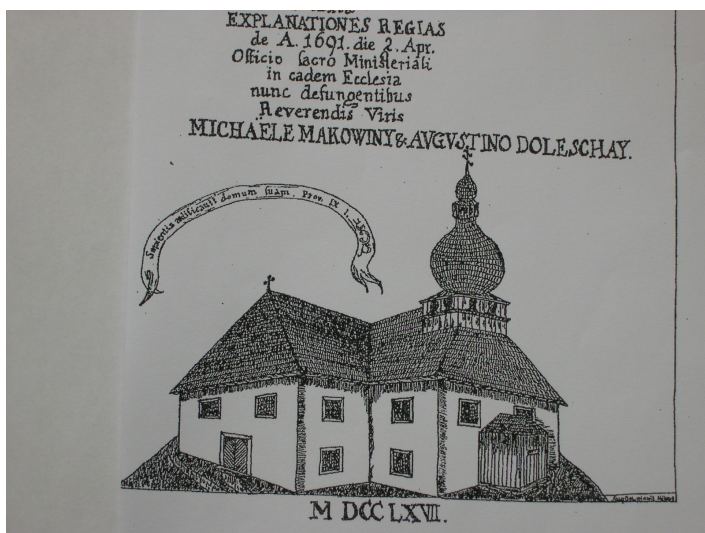 EXPLANATIONES REGIAS
de A. 1691. die 2. Apr.
Officio sacro Ministeriali
in eadem Ecclesia
nunc defungentibus
Reverendis Viris
MICHAELE MAKOWINY & AVGVSTINO DOLESCHAY.
Sapientia ædificavit domum suam. Prov. IX. 1.
M DCC LXVII.